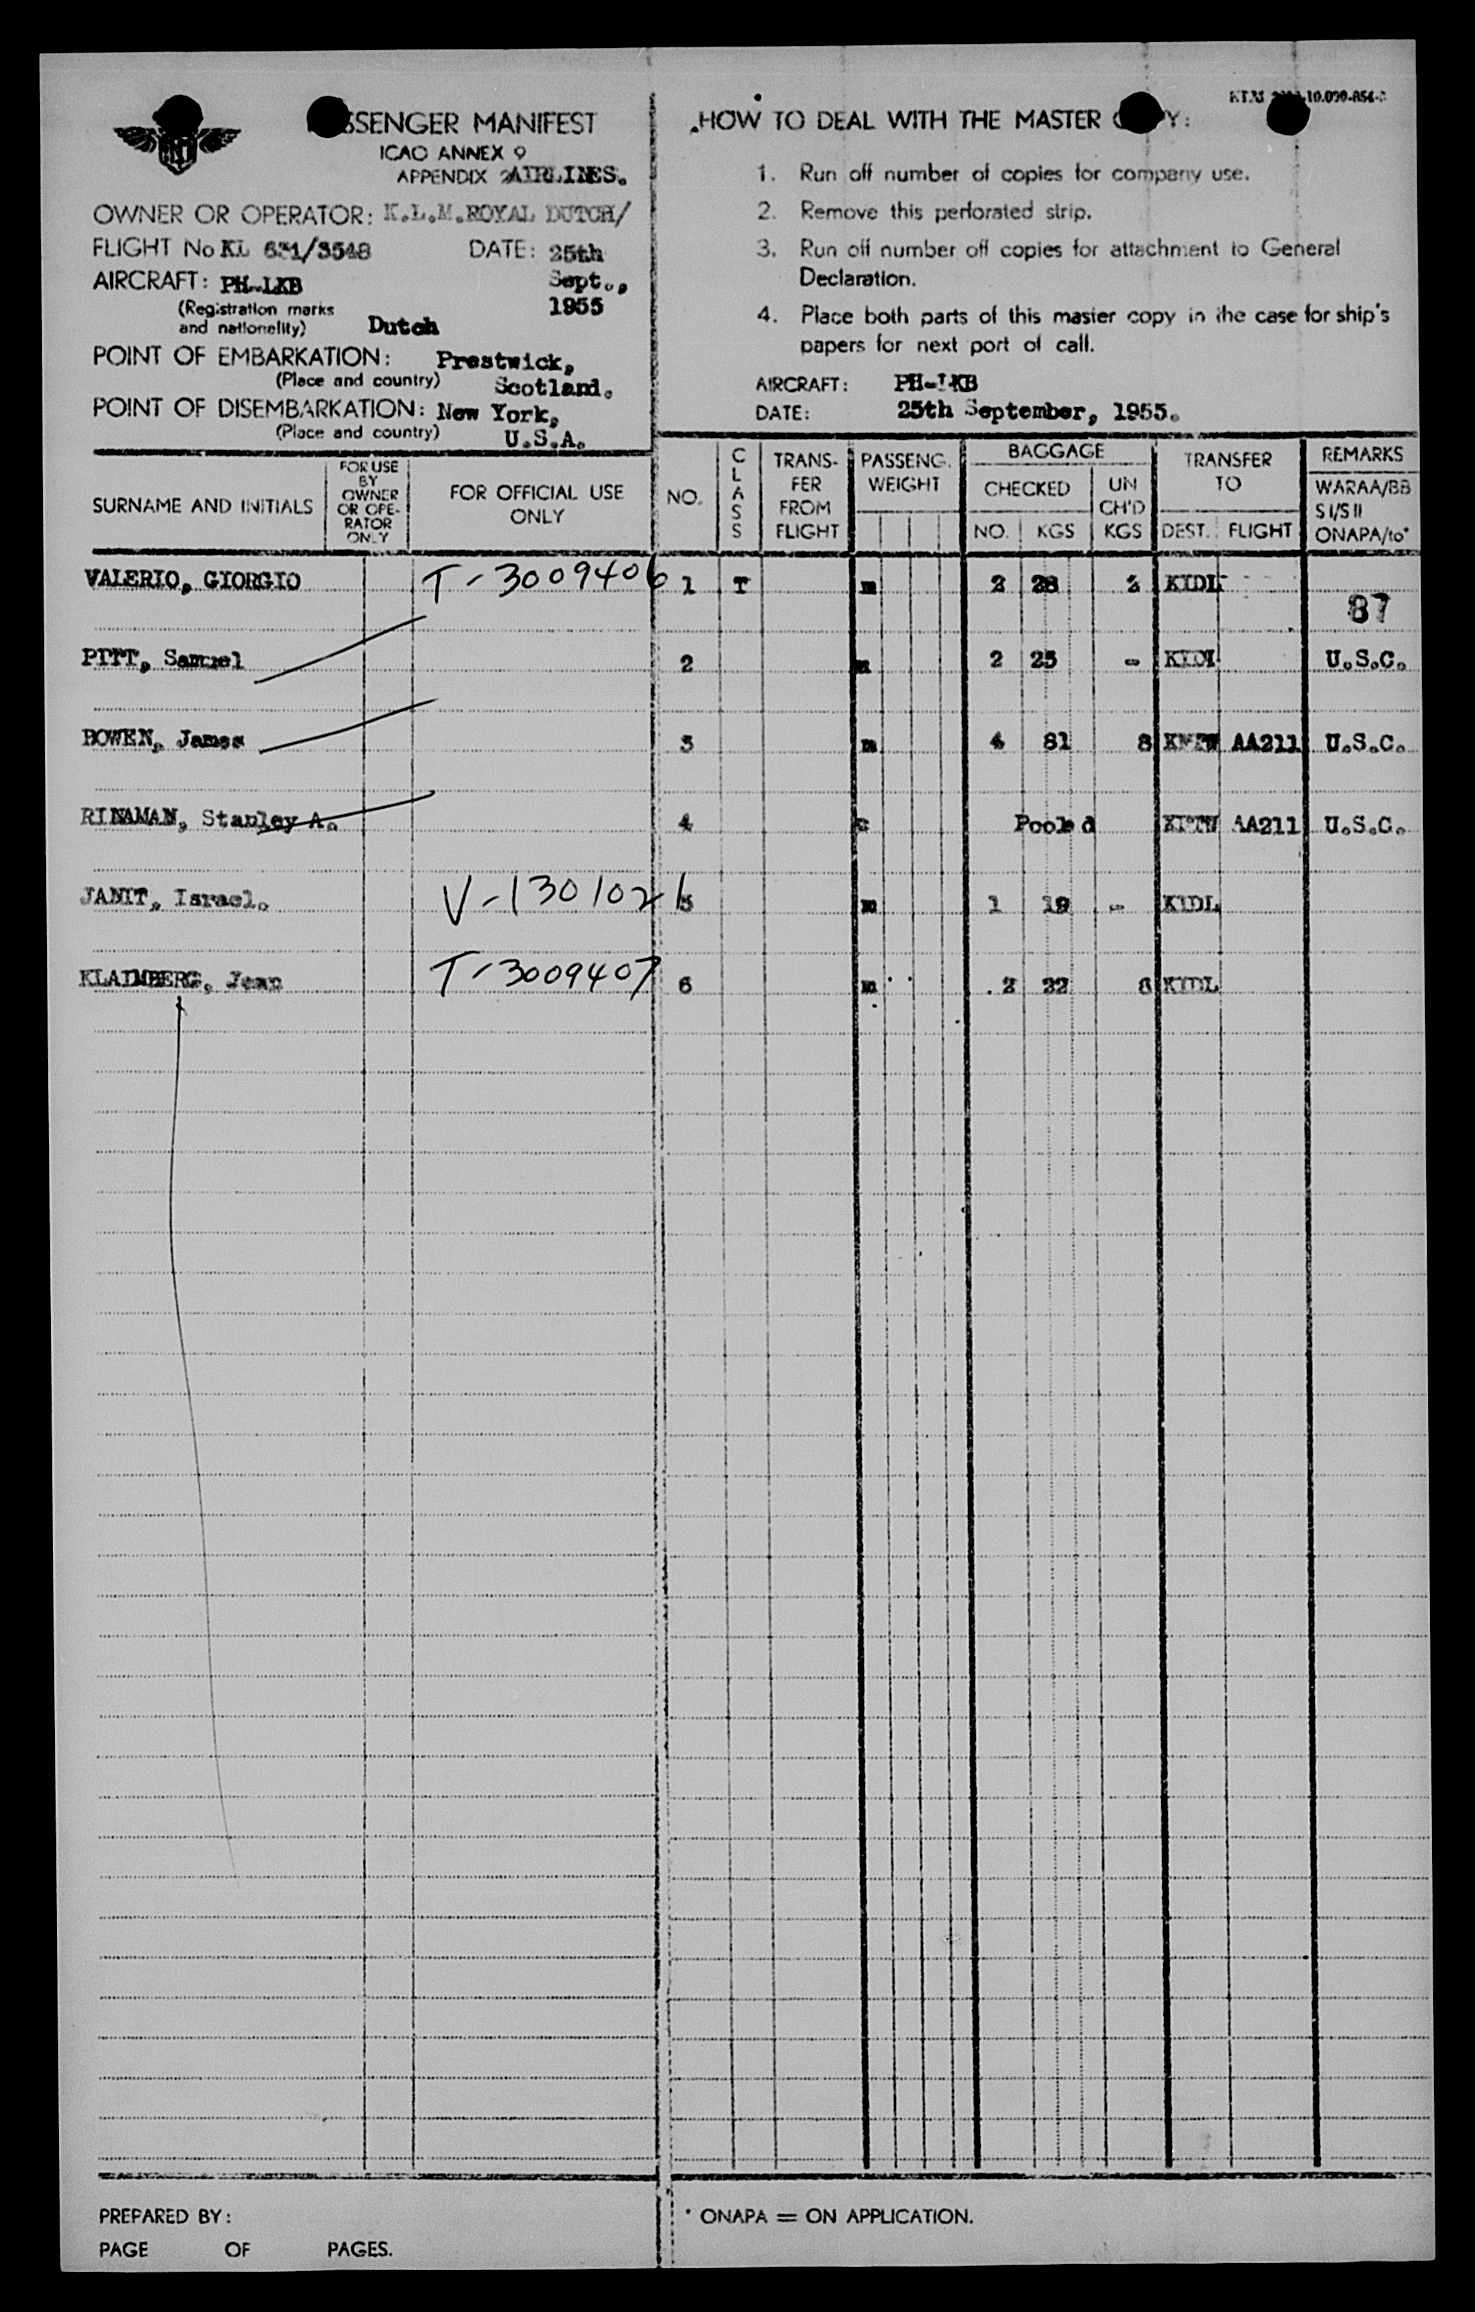 SSENGER MANIFEST
ICAO ANNEX 9
APPENDIX AIRLINES.
OWNER OR OPERATOR: K.L.M. ROYAL DUTCH/
FLIGHT No KL 631/3548 DATE: 25th
AIRCRAFT: PH-LKB Sept.,
(Registration marks 1955
and nationality) Dutch
POINT OF EMBARKATION: Prestwick,
(Place and country) Scotland.
POINT OF DISEMBARKATION: New York,
(Place and country) U.S.A.
HOW TO DEAL WITH THE MASTER C PY:
1. Run off number of copies for company use.
2. Remove this perforated strip.
3. Run off number off copies for attachment to General
Declaration.
4. Place both parts of this master copy in the case for ship's
papers for next port of call.
AIRCRAFT: PH-LKB
DATE: 25th September, 1955.
SURNAME AND INITIALS
FOR USE
BY
OWNER
OR OPE-
RATOR
ONLY
FOR OFFICIAL USE
ONLY
NO.
CLASS
TRANS-
FER
FROM
FLIGHT
PASSENG.
WEIGHT
BAGGAGE
CHECKED
NO. KGS
UN
CH'D
KGS
TRANSFER
TO
DEST. FLIGHT
REMARKS
WARAA/BB
S I/S II
ONAPA/to*
VALERIO, GIORGIO T-3009406 1 T m 2 28 2 KIDL
87
PITT, Samuel 2 m 2 25 - KIDL U.S.C.
BOWEN, James 3 m 4 81 8 AA211 U.S.C.
RINAMAN, Stanley A. 4 c Pooled AA211 U.S.C.
JANIT, Israel. V-1301021 5 m 1 19 - KIDL
KLAIMBERG, Jean T-3009407 6 m 2 22 8 KIDL
PREPARED BY:
PAGE OF PAGES.
* ONAPA = ON APPLICATION.